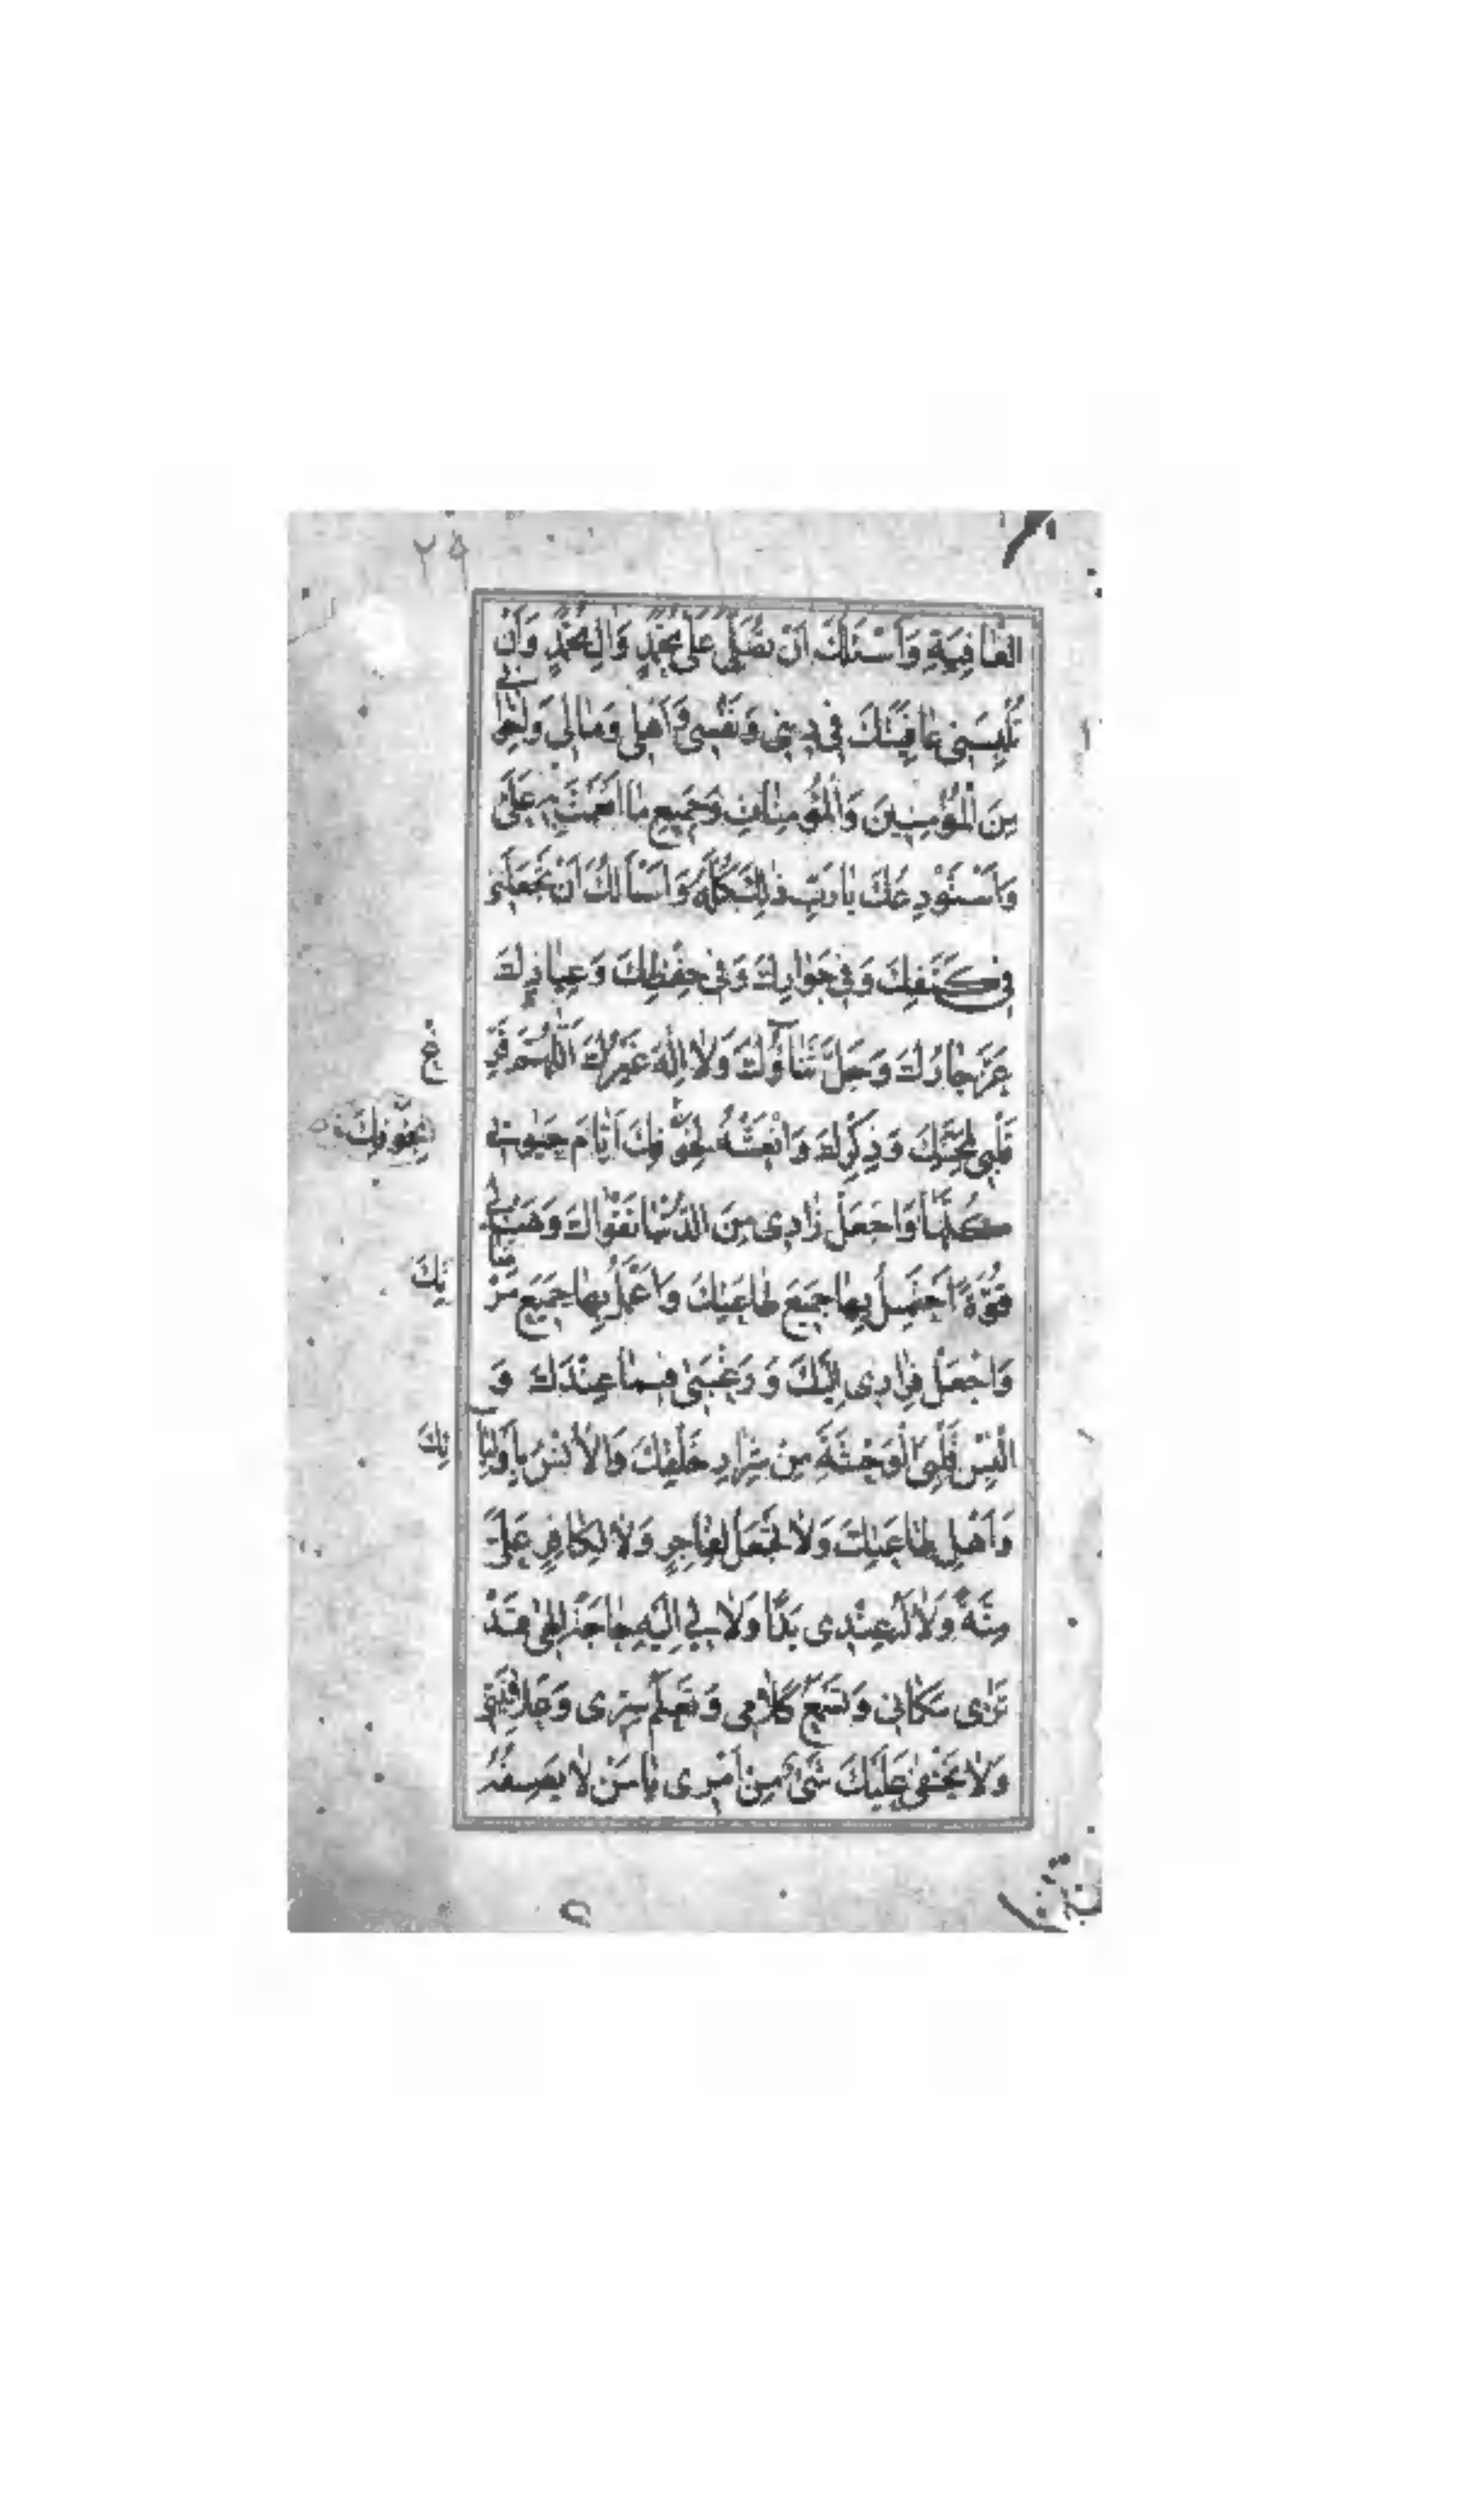 ۲۹
الْعٰافِيَةِ وَاَسْئَلُكَ اَنْ تُصَلِّيَ عَلٰى مُحَمَّدٍ وَاٰلِ مُحَمَّدٍ وَاَنْ
تُلْبِسَنِى عٰافِيَتَكَ فِى دِينِى وَنَفْسِى وَاَهْلِى وَمٰالِى وَاِخْوٰانِى
مِنَ الْمُؤْمِنِينَ وَالْمُؤْمِنٰاتِ وَجَمِيعِ مٰا اَنْعَمْتَ بِهِ عَلَىَّ
وَاَسْتَوْدِعُكَ يٰارَبِّ ذٰلِكَ كُلَّهُ وَاَسْاَلُكَ اَنْ تَجْعَلَنِى
فِى كَنَفِكَ وَفِى جَوٰارِكَ وَفِى حِفْظِكَ وَعِيٰاذِكَ
عَزَّ جٰارُكَ وَجَلَّ ثَنٰاؤُكَ وَلاٰ اِلٰهَ غَيْرُكَ اَللّٰهُمَّ فَرِّغْ
قَلْبِى لِمَحَبَّتِكَ وَذِكْرِكَ وَانْعَشْهُ لِخَوْفِكَ اَيّٰامَ حَيٰوتِى
لِخَوْفِكَ
كُلَّهٰا وَاجْعَلْ زٰادِى مِنَ الدُّنْيٰا تَقْوٰاكَ وَهَبْ لِى
قُوَّةً اَحْتَمِلُ بِهٰا جَمِيعَ طٰاعَتِكَ وَاَعْمَلُ بِهٰا جَمِيعَ مَرْضٰاتِكَ
وَاجْعَلْ فِرٰارِى اِلَيْكَ وَرَغْبَتِى فِيمٰا عِنْدَكَ وَ
اَلْبِسْ قَلْبِىَ الْوَحْشَةَ مِنْ شِرٰارِ خَلْقِكَ وَالْاُنْسَ بِاَوْلِيٰائِكَ
وَاَهْلِ طٰاعَتِكَ وَلاٰ تَجْعَلْ لِفٰاجِرٍ وَلاٰ لِكٰافِرٍ عَلَىَّ
مِنَّةً وَلاٰ لَهُ عِنْدِى يَدًا وَلاٰ بِى اِلَيْهِ حٰاجَةً اِلٰهِى قَدْ
تَرٰى مَكٰانِى وَتَسْمَعُ كَلاٰمِى وَتَعْلَمُ سِرِّى وَعَلاٰنِيَتِى
وَلاٰ يَخْفٰى عَلَيْكَ شَىْءٌ مِنْ اَمْرِى يٰا مَنْ لاٰ يَصِفُهُ